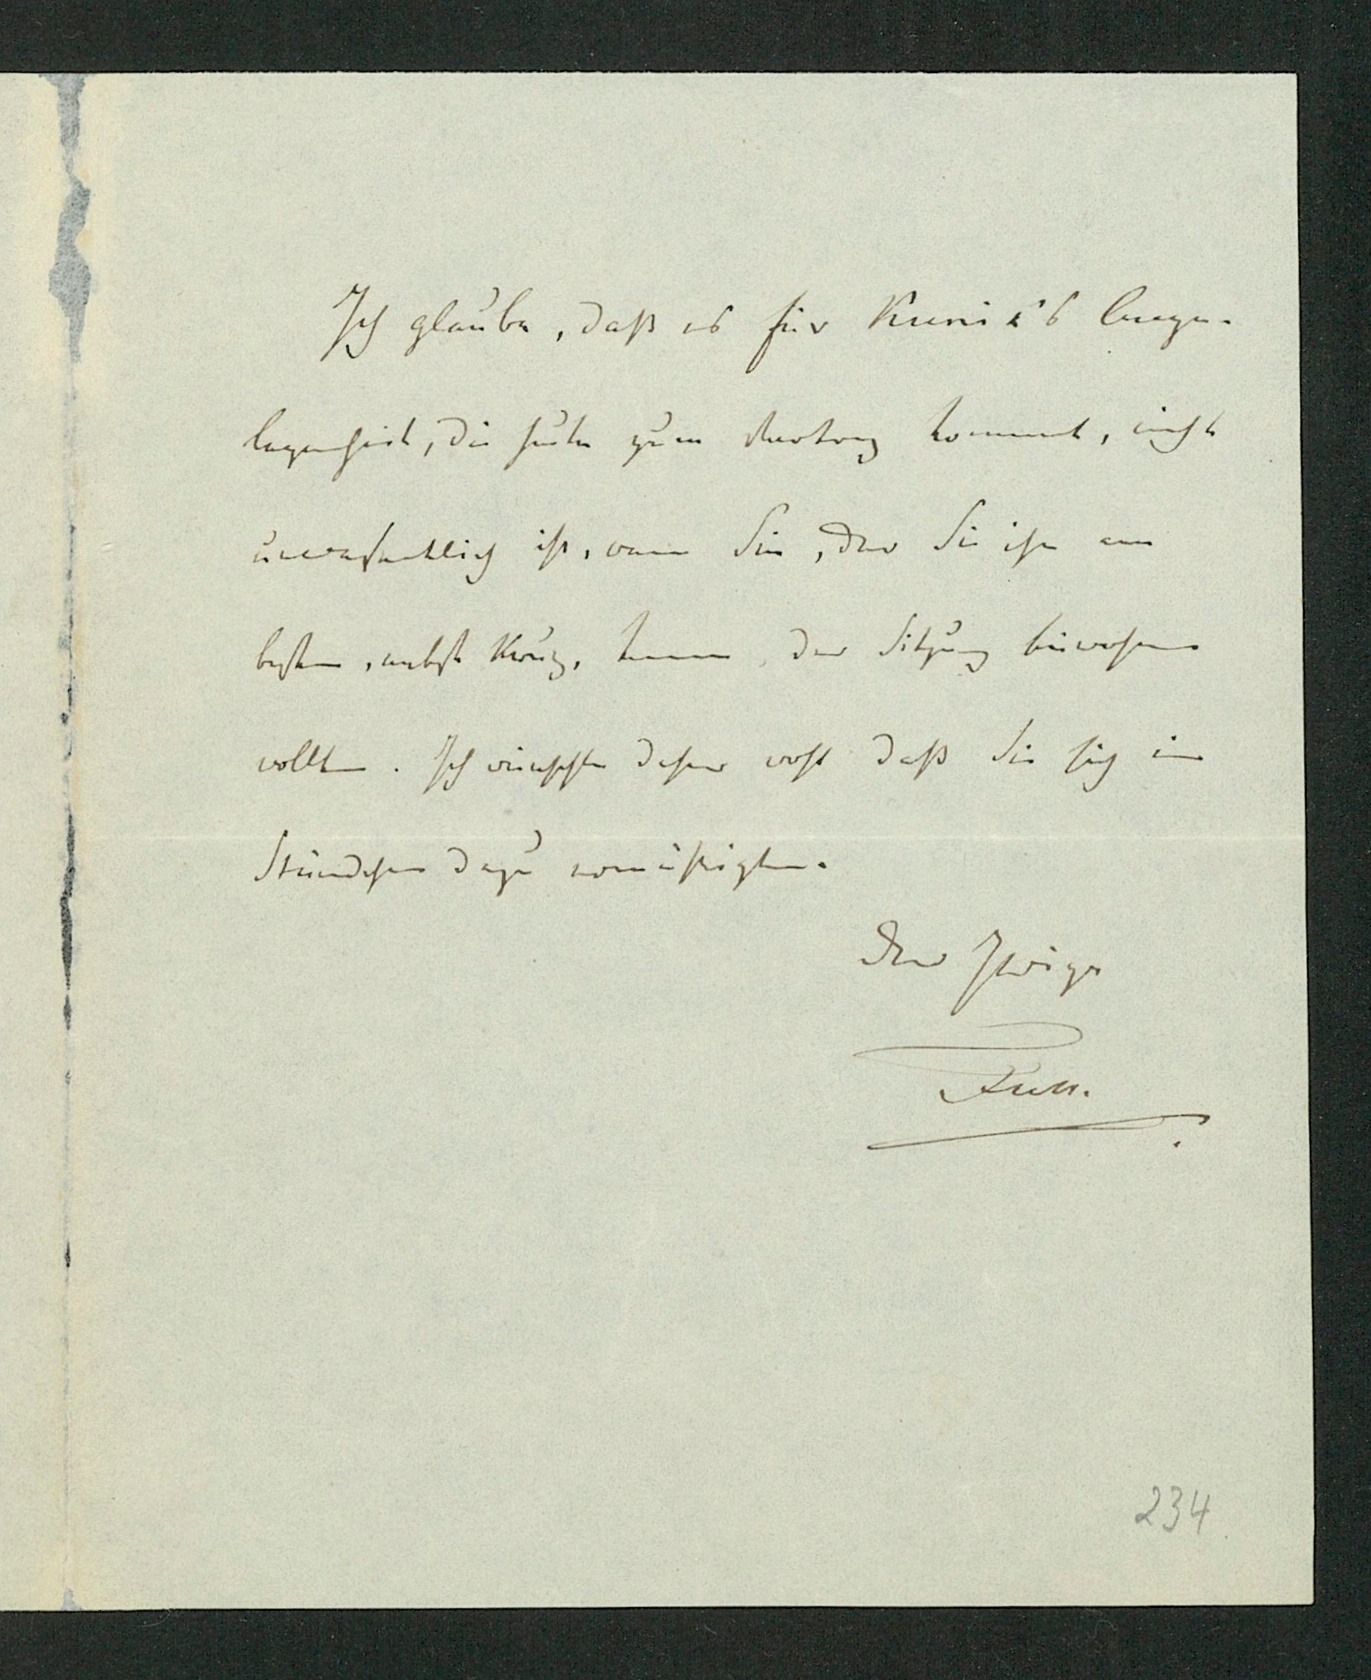 Ich glaube, daß es für Kunik's Angele-
legenheit, die heute zum Vortrag kommt, nicht
unwesentlich ist, wenn Sie, der Sie ihn am
besten, nebst Krug, kennen, der Sitzung beiwohnen
wollten. Ich wünschte daher wohl daß Sie sich ein
Stündchen dazu ermüßigten.
Der Ihrige
Fuss.
234